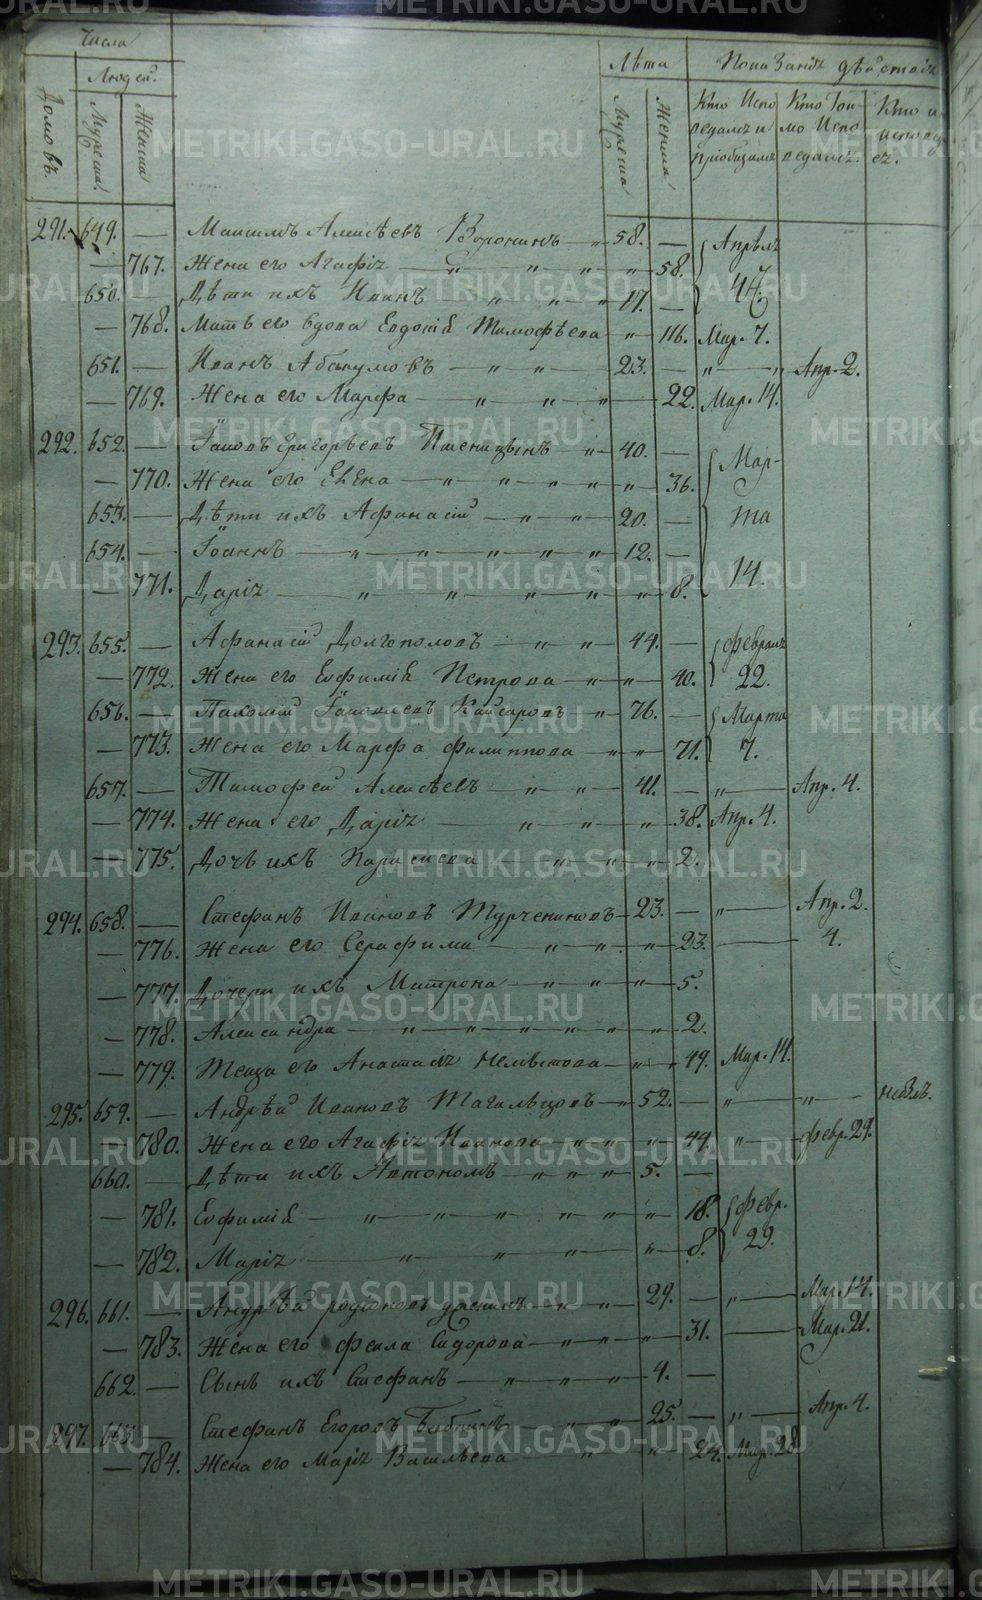 Числа
Людей.
Домовъ.
Мужеска.
Женска
Лѣта
Мужеска
Женска
Показаніе дѣйствія
Кто Испо
ведался и
пріобщался
Кто Ток
мо Испо
ведался.
Кто и
исповед
ся.
291. 649. — Максимъ Алексѣевъ Воронинъ 58. — Апрѣля
— 767. Жена его Агафія 58. 4
650. — Дѣти ихъ Иванъ 17. —
— 768. Мать его вдова Евдокія Тимофѣева — 116. Мар. 7.
651. — Иванъ Абакумовъ 23. — Апр. 2.
— 769. Жена его Марфа 22. Мар. 14.
292. 652. — Іаковъ Григорьевъ Пшеницынъ 40. — Мар-
— 770. Жена его Елена 36.
653. — Дѣти ихъ Афанасій 20. — та
654. — Іоаннъ 12. —
— 771. Дарія 8. 14.
293. 655. — Афанасій Долгополовъ 44. — Февраля
— 772. Жена его Евфимія Петрова 40. 22.
656. — Пахомій Кайгородъ 76. — Марта
— 773. Жена его Марфа Филиппова 71. 7.
657. — Тимофей Алексѣевъ 41. — Апр. 4.
— 774. Жена его Дарія 38. Апр. 4.
— 775. Дочь ихъ 2.
294. 658. — Стефанъ Ивановъ Турчениновъ 23. — Апр. 2.
— 776. Жена его Серафима 23. 4.
— 777. Дочери ихъ Матрона 5.
— 778. Александра 2.
— 779. Теща его Анастасія 49. Мар. 14.
295. 659. — Андрѣй Ивановъ Тагильцовъ 52. — небылъ.
780. Жена его Агафія Иванова 49. февр. 29.
660. — Дѣти ихъ Автономъ 5. —
— 781. Евфимія 18. Февр.
— 782. Марія 8. 29.
296. 661. — Андрѣй Родіоновъ 29. — Мар. 14.
— 783. Жена его Фекла Сидорова 31. — Мар. 21.
662. — Сынъ ихъ Стефанъ 4. —
297. 663. — Стефанъ Егоровъ Бабкинъ 25. — Апр. 4.
— 784. Жена его Марія Васильева 24. Мар. 28
METRIKI.GASO-URAL.RU